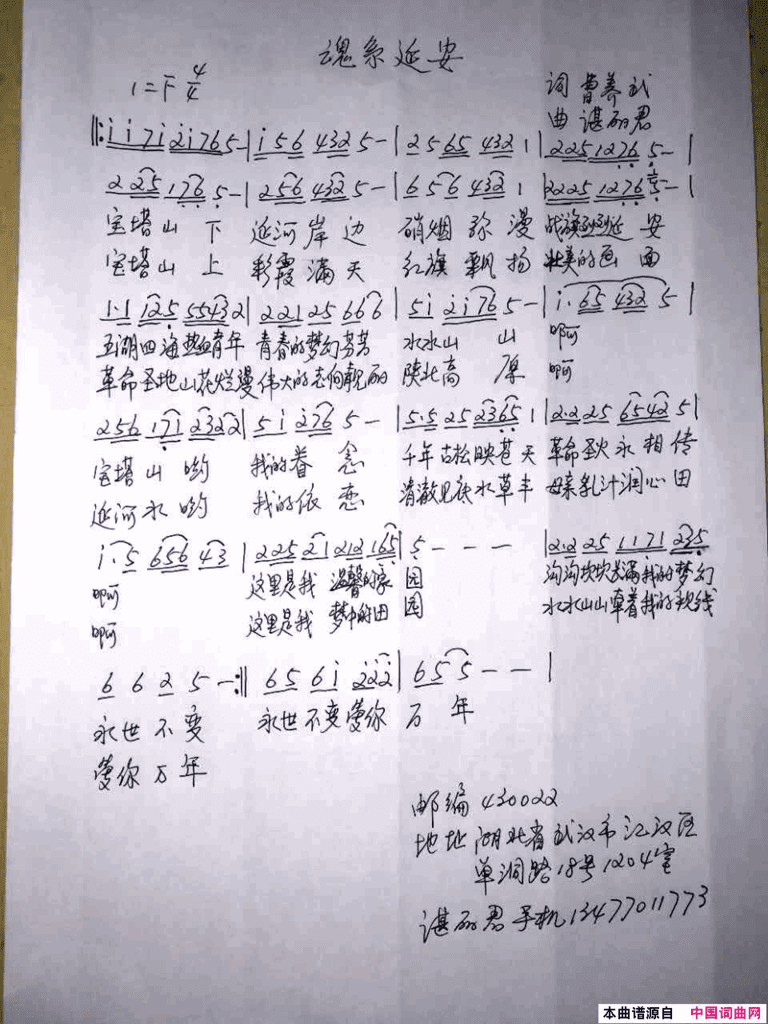 魂系延安
1=F 4/4
词 曹养武
曲 谌丽君
‖: i i 7 i 2 i 7 6 5 - | i 5 6 4 3 2 5 - | 2 5 6 5 4 3 2 1 | 2 2 5 1 2 7 6 5 - |
2 2 5 1 7 6 5 - | 2 5 6 4 3 2 5 - | 6 5 6 4 3 2 1 | 2 2 2 5 1 2 7 6 5 - |
宝塔山 下 延河岸 边 硝烟 弥 漫 战旗 延 安
宝塔山 上 彩霞满 天 红旗 飘 扬 壮美的画 面
1·1 1 2 5 5 5 4 3 2 | 2 2 1 2 5 6 6 6 | 5 i 2 i 7 6 5 - | i· 6 5 4 3 2 5 |
五湖四海热血青年 青春的梦幻芬芳 水水山 山 啊
革命圣地山花烂漫 伟大的志向靓丽 陕北高 原 啊
2 5 6 1 7 1 2 3 2 2 | 5 i 2 7 6 5 - | 5·5 2 5 2 3 6 5 1 | 2·2 2 5 6 5 4 2 5 |
宝塔山 哟 我的眷 念 千年古松映苍天 革命圣火永相传
延河水 哟 我的依 恋 清澈见底水草丰 母亲乳汁润心田
i· 5 6 5 6 4 3 | 2 2 5 2 1 2 1 2 1 6 5 | 5 - - - | 2·2 2 5 1 1 7 1 2 3 5
啊 这里是我 温馨的家 园 沟沟坎坎 满我的梦幻
啊 这里是我 梦中的田 园 水水山山牵着我的视线
6 6 2 5 - :‖ 6 5 6 i 2 2 2 | 6 5 5 - - |
永世不变 永世不变爱你 万 年
爱你万年
邮编 430022
地址 湖北省武汉市江汉区
单洞路18号1204室
谌丽君 手机 13477011773
本曲谱源自 中国词曲网